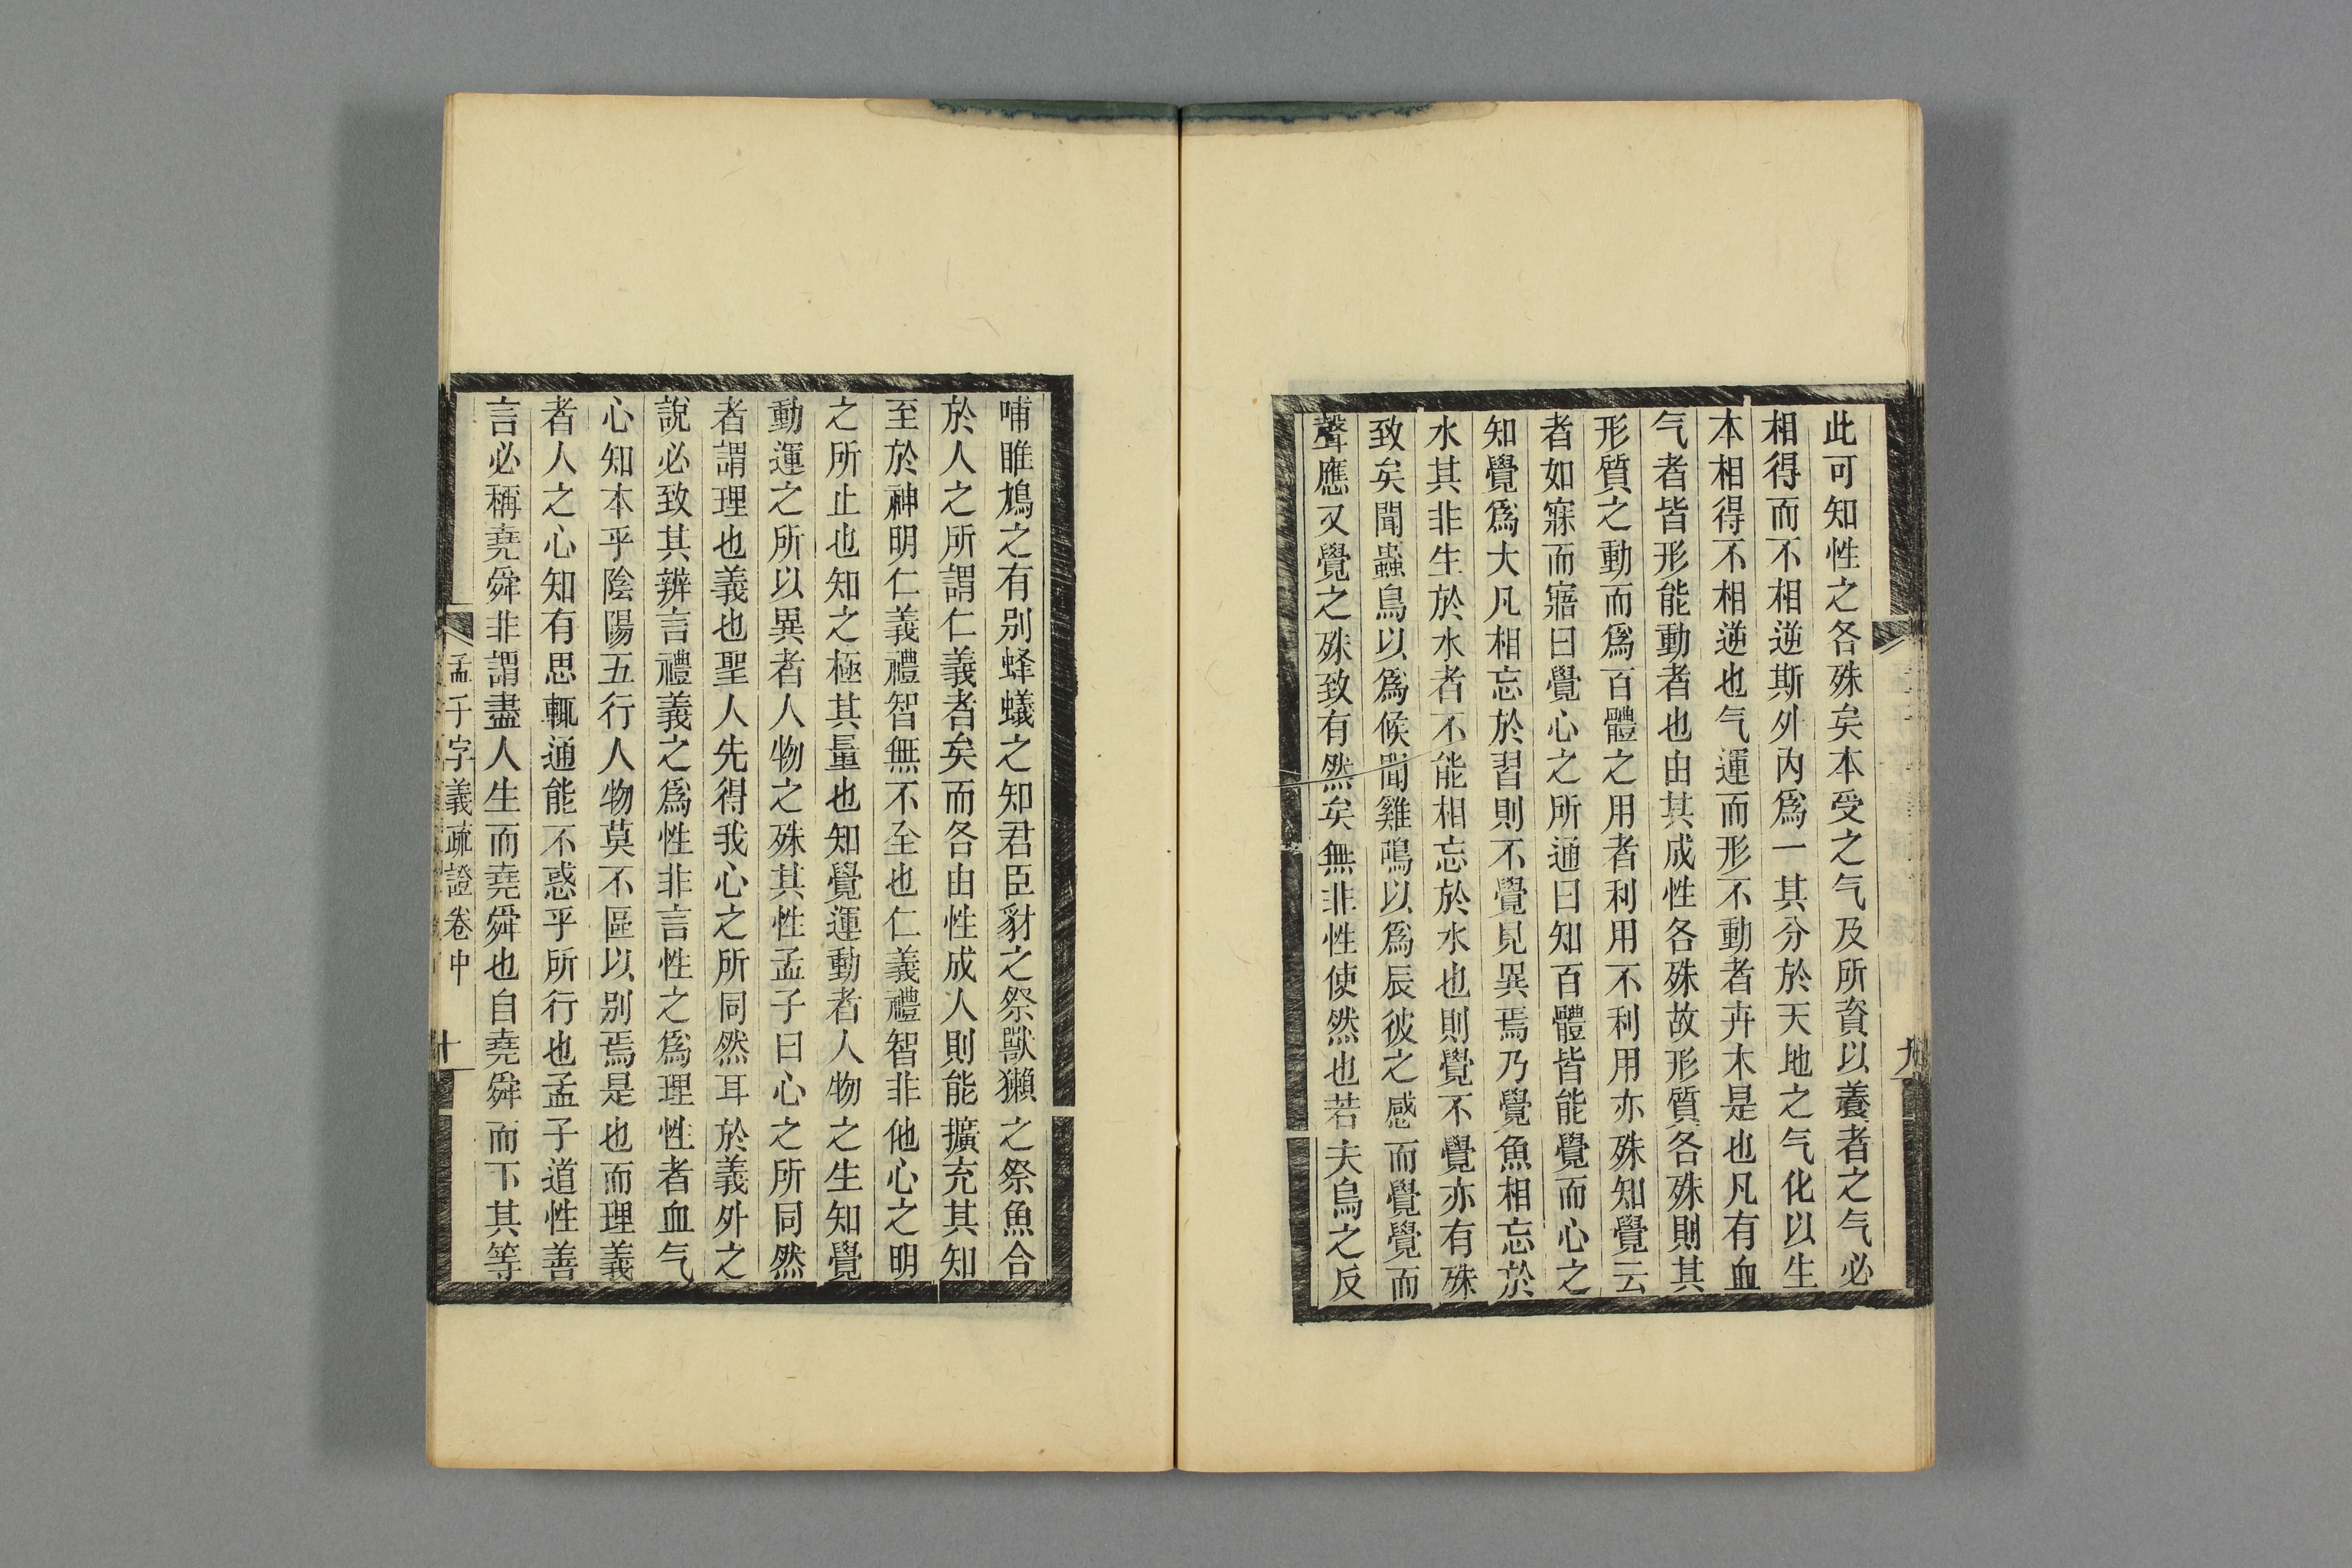 此可知性之各殊矣本受之气及所資以養者之气必
相得而不相逆斯外內爲一其分於天地之气化以生
本相得不相逆也气運而形不動者卉木是也凡有血
气者皆形能動者也由其成性各殊故形質各殊則其
形質之動而爲百體之用者利用不利用亦殊知覺云
者如寐而寤曰覺心之所通曰知百體皆能覺而心之
知覺爲大凡相忘於習則不覺見異焉乃覺魚相忘於
水其非生於水者不能相忘於水也則覺不覺亦有殊
致矣聞蟲鳥以爲候聞雞鳴以爲辰彼之感而覺覺而
聲應又覺之殊致有然矣無非性使然也若夫烏之反
九
哺雎鳩之有别蜂蟻之知君臣豺之祭獸獺之祭魚合
於人之所謂仁義者矣而各由性成人則能擴充其知
至於神明仁義禮智無不至也仁義禮智非他心之明
之所止也知之極其量也知覺運動者人物之生知覺
動運之所以異者人物之殊其性孟子曰心之所同然
者謂理也義也聖人先得我心之所同然耳於義外之
說必致其辨言禮義之爲性非言性之爲理性者血气
心知本乎陰陽五行人物莫不區以别焉是也而理義
者人之心知有思輒通能不惑乎所行也孟子道性善
言必稱堯舜非謂盡人生而堯舜也自堯舜而下其等
孟子字義疏證卷中 十